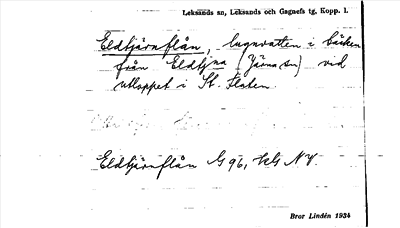 Leksands sn, Leksands och Gagnefs tg. Kopp. l.
Eldtjärnflån, lugnvatten i bäcken
från Eldtjna (Järna sn) vid
utloppet i St. Flaten.
Eldtjärnflån G 96, bl NV
Bror Lindén 1934